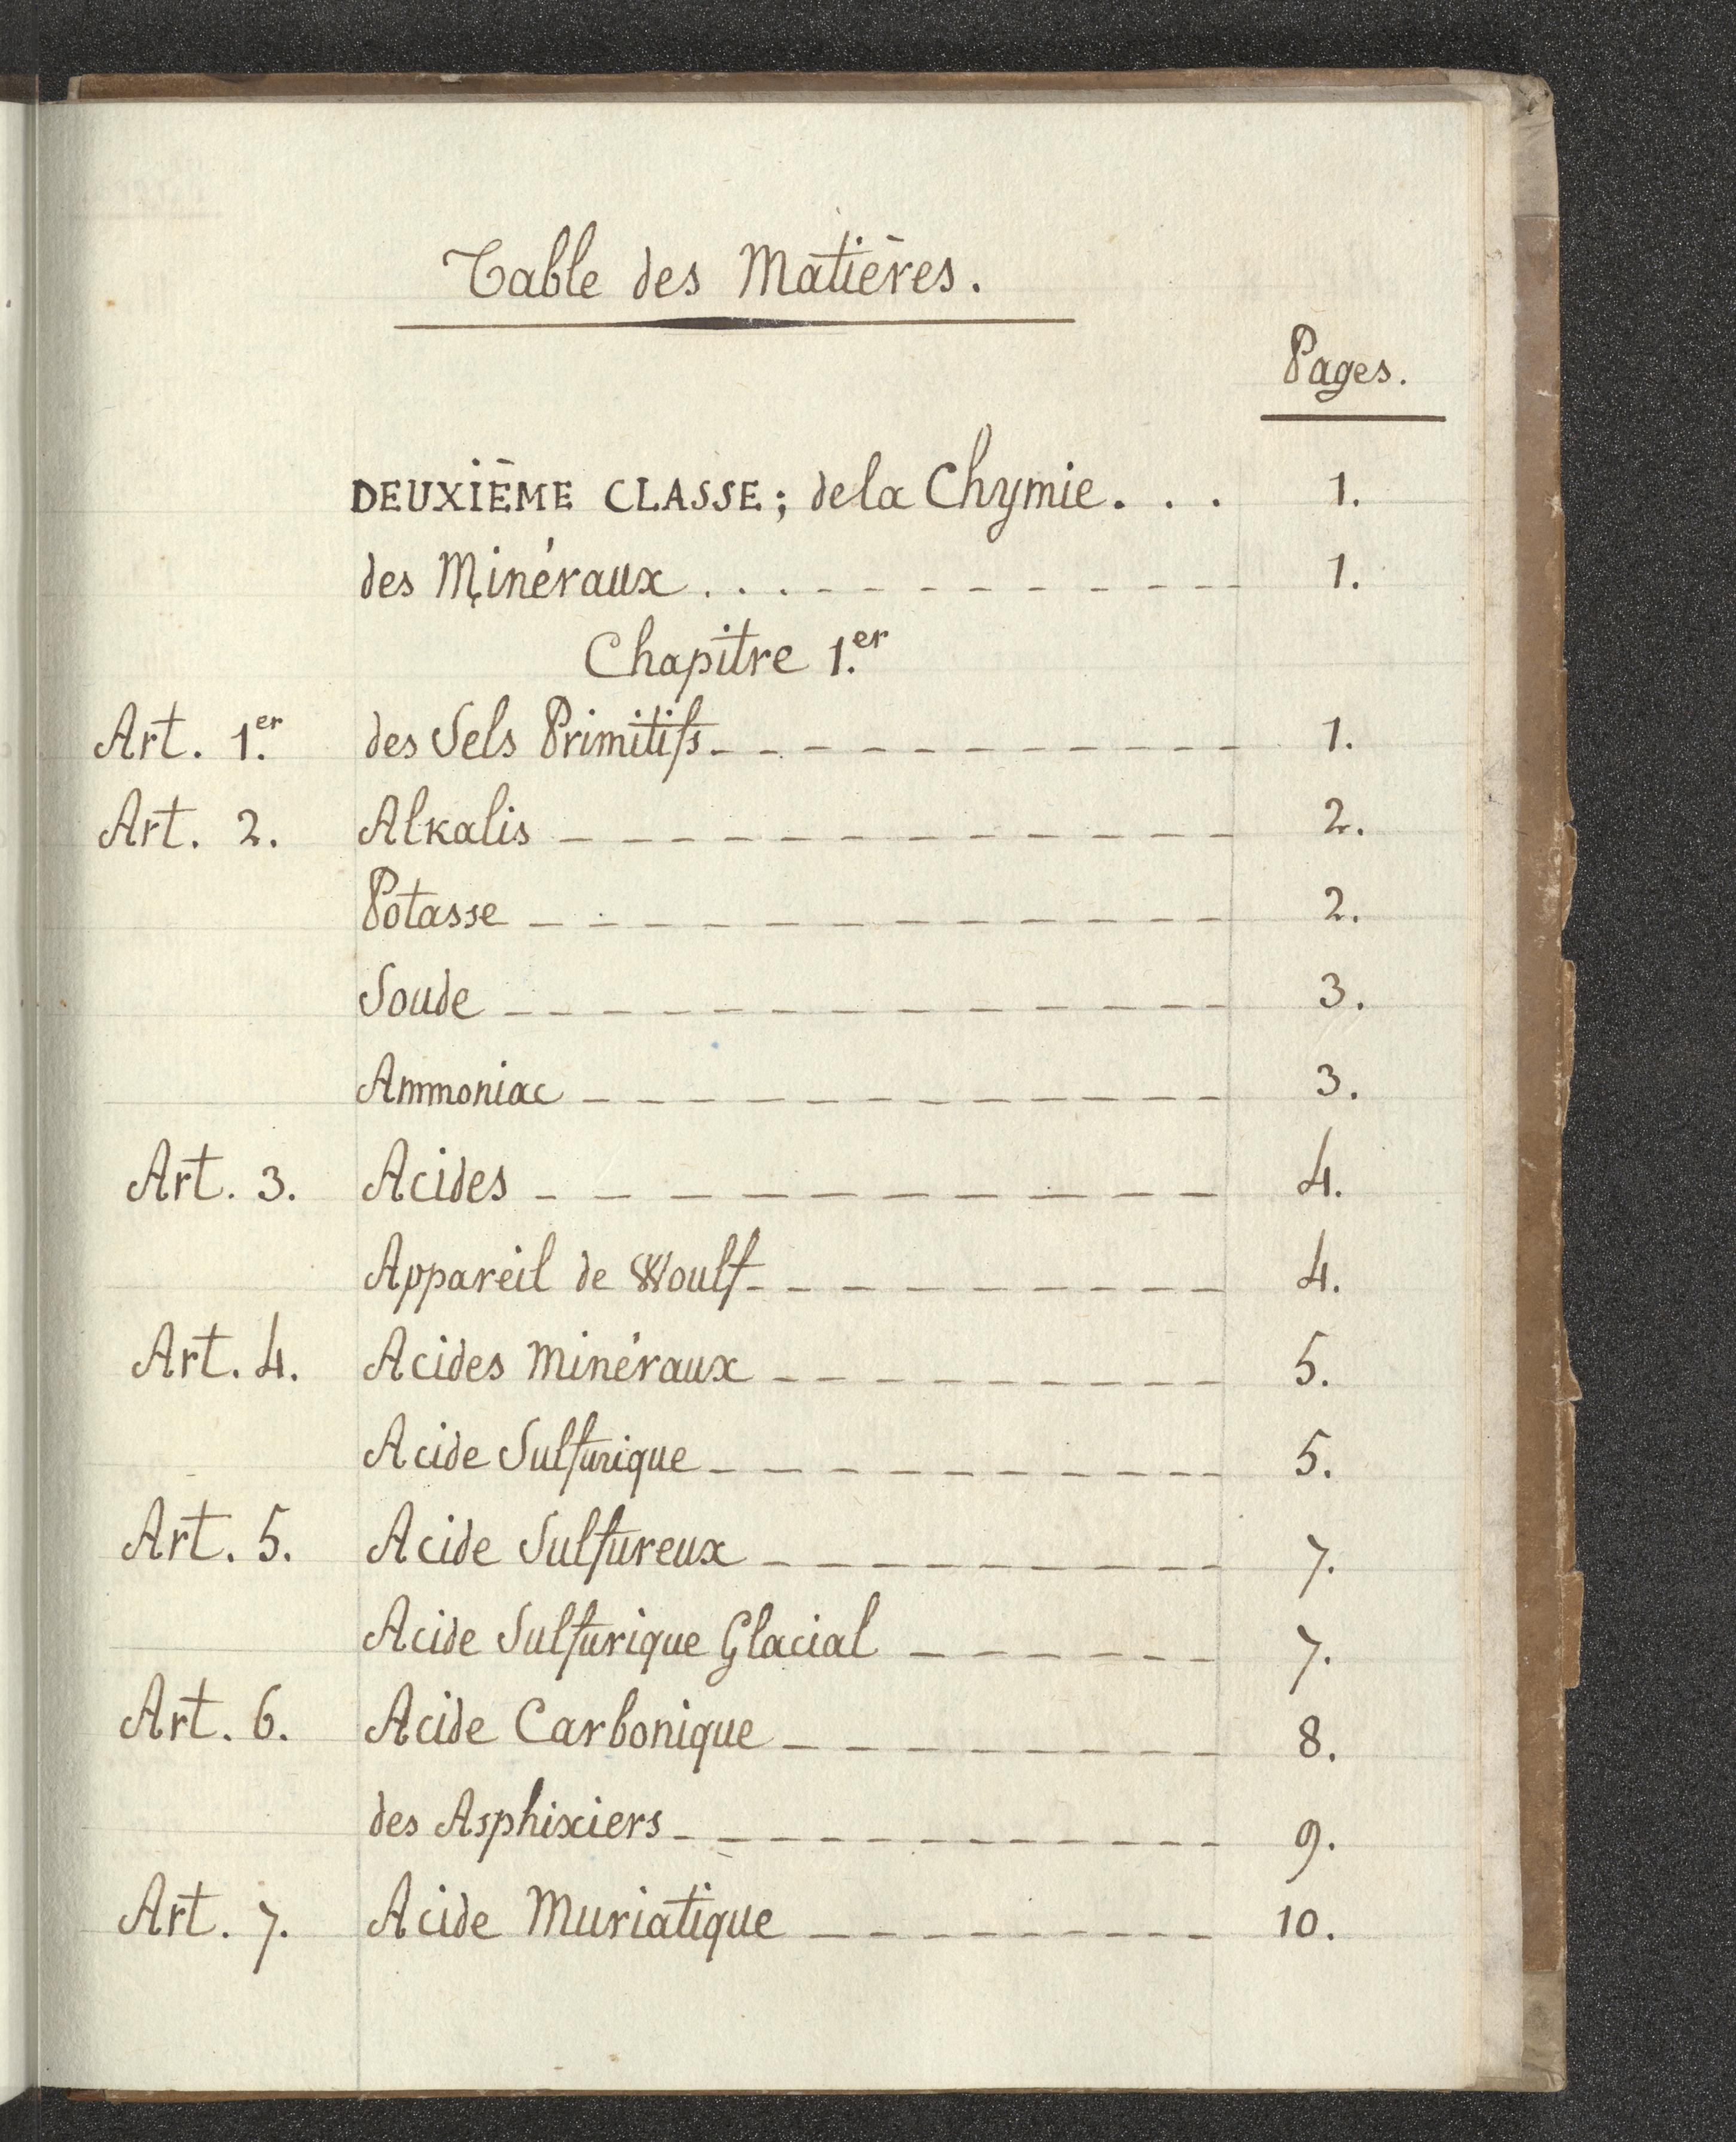 Table des Matières.
Pages.
DEUXIÈME CLASSE; de la Chymie. . . 1.
des Minéraux . . . . - - - - - - - - 1.
Chapitre 1.er
Art. 1.er des Sels Primitifs - - - - - - - - - - 1.
Art. 2. Alkalis - - - - - - - - - - - - - 2.
Potasse - - - - - - - - - - - - - 2.
Soude - - - - - - - - - - - - - - 3.
Ammoniac - - - - - - - - - - - - 3.
Art. 3. Acides - - - - - - - - - - - 4.
Appareil de Woulf - - - - - - - - - 4.
Art. 4. Acides Minéraux - - - - - - - - - - 5.
Acide Sulfurique - - - - - - - - - - 5.
Art. 5. Acide Sulfureux - - - - - - - - - 7.
Acide Sulfurique Glacial - - - - - - - 7.
Art. 6. Acide Carbonique - - - - - - - - - 8.
des Asphixiers - - - - - - - - - - - - 9.
Art. 7. Acide Muriatique - - - - - - - - - 10.